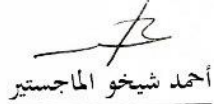 أحمد شيخو الماجستير